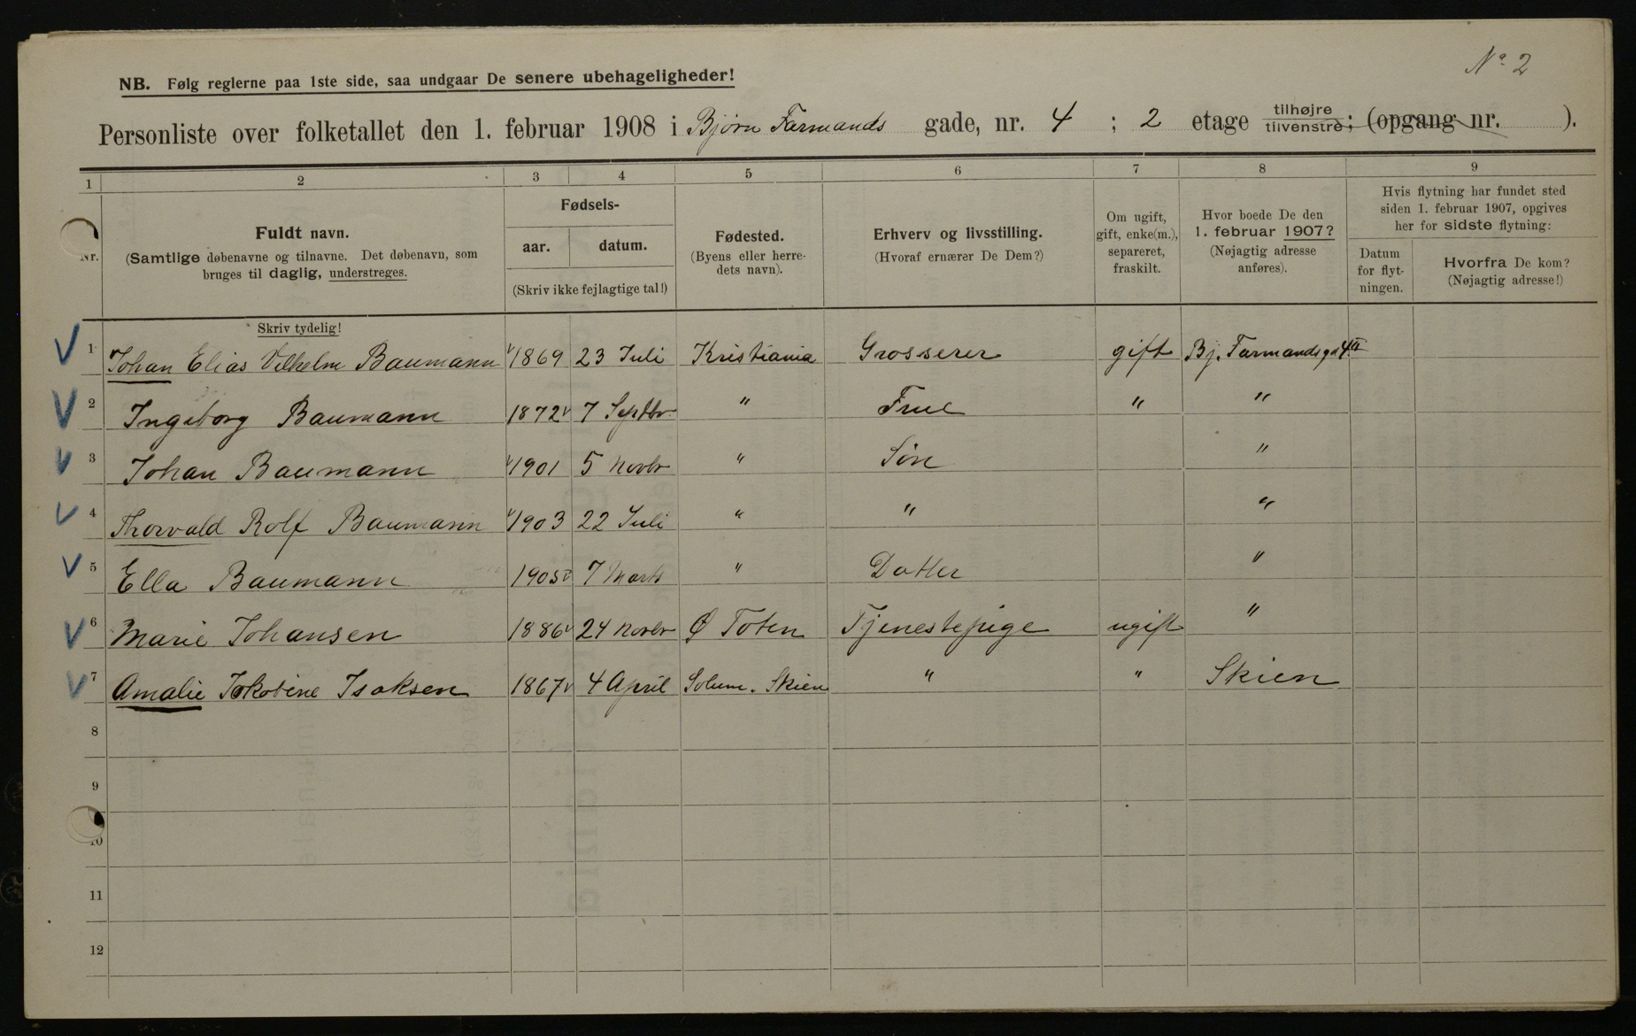 Nº 2
NB. Følg reglerne paa 1ste side, saa undgaar De senere ubehageligheder!
Personliste over folketallet den 1. februar 1908 i Bjørn Farmands gade, nr. 4 ; 2 etage tilhøjre tilvenstre; (opgang nr. ).
1 2 3 4 5 6 7 8 9
Nr.
Fuldt navn.
(Samtlige døbenavne og tilnavne. Det døbenavn, som
bruges til daglig, understreges.
Skriv tydelig!
Fødsels-
aar. datum.
(Skriv ikke fejlagtige tal!)
Fødested.
(Byens eller herre-
dets navn).
Erhverv og livsstilling.
(Hvoraf ernærer De Dem?)
Om ugift,
gift, enke(m.),
separeret,
fraskilt.
Hvor boede De den
1. februar 1907?
(Nøjagtig adresse
anføres).
Hvis flytning har fundet sted
siden 1. februar 1907, opgives
her for sidste flytning:
Datum
for flyt-
ningen.
Hvorfra De kom?
(Nøjagtig adresse!)
1 Johan Elias Vilhelm Baumann 1869 23 Juli Kristiania Grosserer gift Bj. Farmandsgd 4 II
2 Ingeborg Baumann 1872 7 Septbr. " Frue " "
3 Johan Baumann 1901 5 Novbr " Søn "
4 Thorvald Rolf Baumann 1903 22 Juli " " "
5 Ella Baumann 1905 7 Marts " Datter "
6 Marie Johansen 1886 24 Novbr Ø Toten Tjenestepige ugift "
7 Amalie Jakobine Isaksen 1867 4 April Solum. Skien " " Skien
8
9
10
11
12